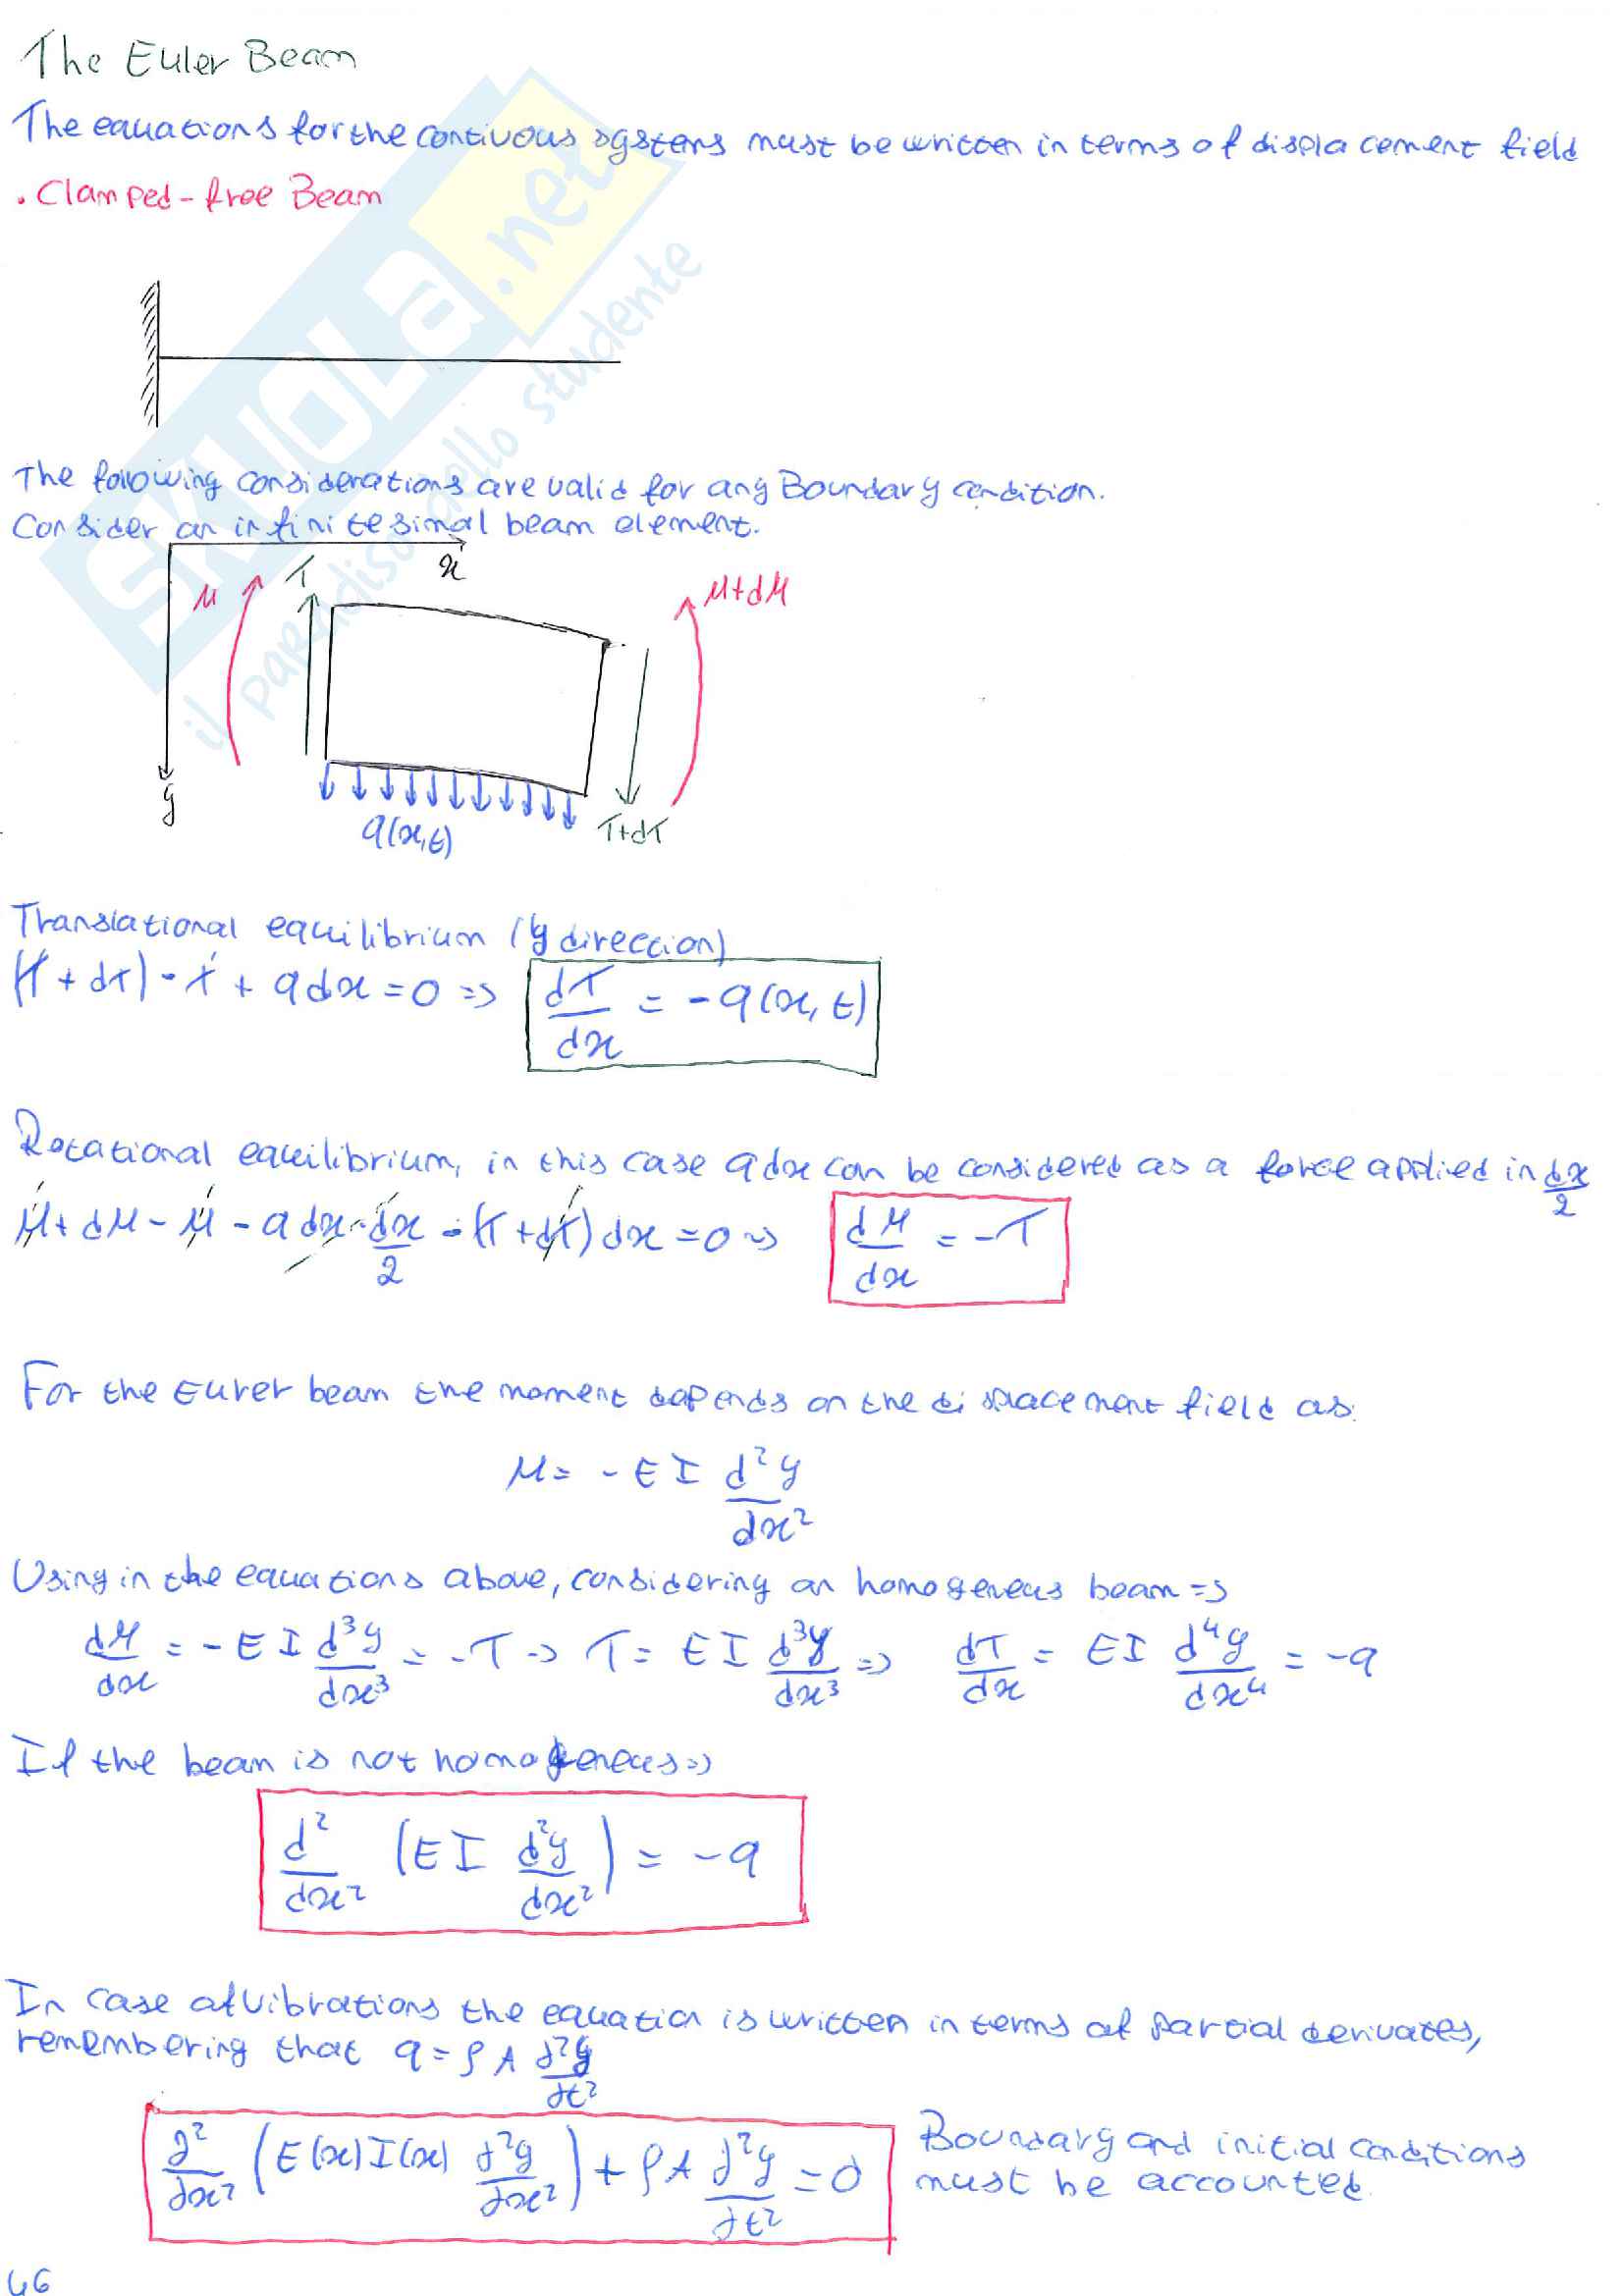 The Euler Beam
The equations for the contivous systems must be written in terms of displacement field
. Clamped-free Beam
The following considerations are valid for any Boundary condition.
Consider an infinitesimal beam element.
x
M T M+dM
y
q(x,t) T+dT
Translational equilibrium (y direction)
(T+dT)-T+qdx=0 => dT/dx = -q(x,t)
Rotational equilibrium, in this case qdx can be considered as a force applied in dx/2
M+dM-M-qdx·dx/2-(T+dT)dx=0 => dM/dx = -T
For the Eurer beam the moment depends on the displacement field as:
M= -EI d²y/dx²
Using in the equations above, considering an homogeneus beam =>
dM/dx = -EI d³y/dx³ = -T -> T= EI d³y/dx³ => dT/dx = EI d⁴y/dx⁴ = -q
If the beam is not homogeneus =>
d²/dx² (EI d²y/dx²) = -q
In case of vibrations the equation is written in terms of partial derivates,
remembering that q = ρA ∂²y/∂t²
∂²/∂x² (E(x)I(x) ∂²y/∂x²) + ρA ∂²y/∂t² = 0 Boundary and initial conditions
must be accounted.
46
SKUOLa.net
il paradiso dello studente